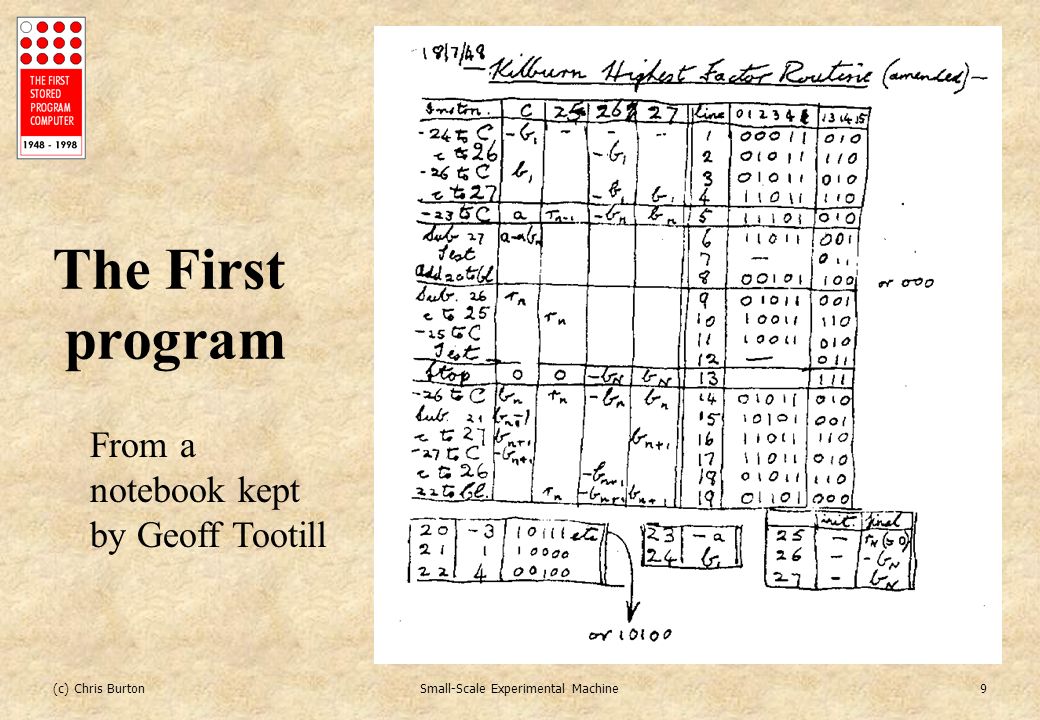 THE FIRST
STORED
PROGRAM
COMPUTER
1948 - 1998
The First
program
From a
notebook kept
by Geoff Tootill
18/7/48
Kilburn Highest Factor Routine (amended)-
Instrn. C 25 26 27 line 01234 131415
-24 to C -b₁ - - - 1 00011 010
c to 26 -b₁ 2 01011 110
-26 to C b₁ 3 01011 010
c to 27 -b₁ b₁ 4 11011 110
-23 to C a rₙ₋₁ -bₙ bₙ 5 11101 010
Sub 27 a-bₙ 6 11011 001
Test 7 — 011
Add 20 to bl 8 00101 100 or 000
Sub. 26 rₙ 9 01011 001
c to 25 rₙ 10 10011 110
-25 to C 11 10011 010
Test 12 — 011
Stop 0 0 -b_N b_N 13 111
-26 to C bₙ rₙ -bₙ bₙ 14 01011 010
Sub. 21 bₙ₊₁ 15 10101 001
c to 27 bₙ₊₁ bₙ₊₁ 16 11011 110
-27 to C -bₙ₊₁ 17 11011 010
c to 26 -bₙ₊₁ 18 01011 110
22 to bl. rₙ -bₙ₊₁ bₙ₊₁ 19 01101 000
20 -3 10111 etc
21 1 10000
22 4 00100
or 10100
23 -a
24 b₁
init. final
25 - r_N(=0)
26 - -b_N
27 - b_N
(c) Chris Burton
Small-Scale Experimental Machine
9